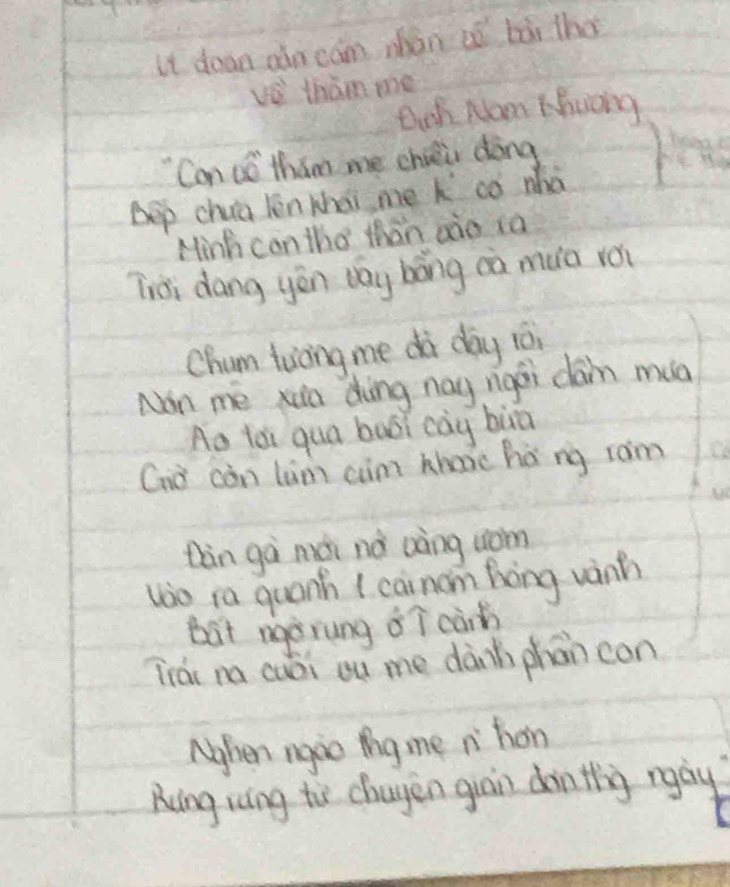 Vt đoạn văn cảm nhận về bài thơ
Về thăm mẹ
Đinh Nam Khương
"Con về thăm mẹ chiều đông
Bếp chưa lên khói mẹ k có nhà
Mình con thơ thẩn vào ra
Trời đang yên vậy bỗng oà mưa rơi
Chum tương mẹ đã đậy rồi
Nón mê xưa đứng nay ngồi dầm mưa
Áo tơi qua buổi cày bừa
Giờ còn lủm củm khoác hờ ng rơm
Đàn gà mới nở vàng ươm
Vào ra quanh 1 cái nơm hỏng vành
Bất ngờ rụng ở T cành
Trái na cuối vụ mẹ dành phần con
Nghẹn ngào thg mẹ n' hơn
Rưng rưng từ chuyện giản đơn thg ngày"